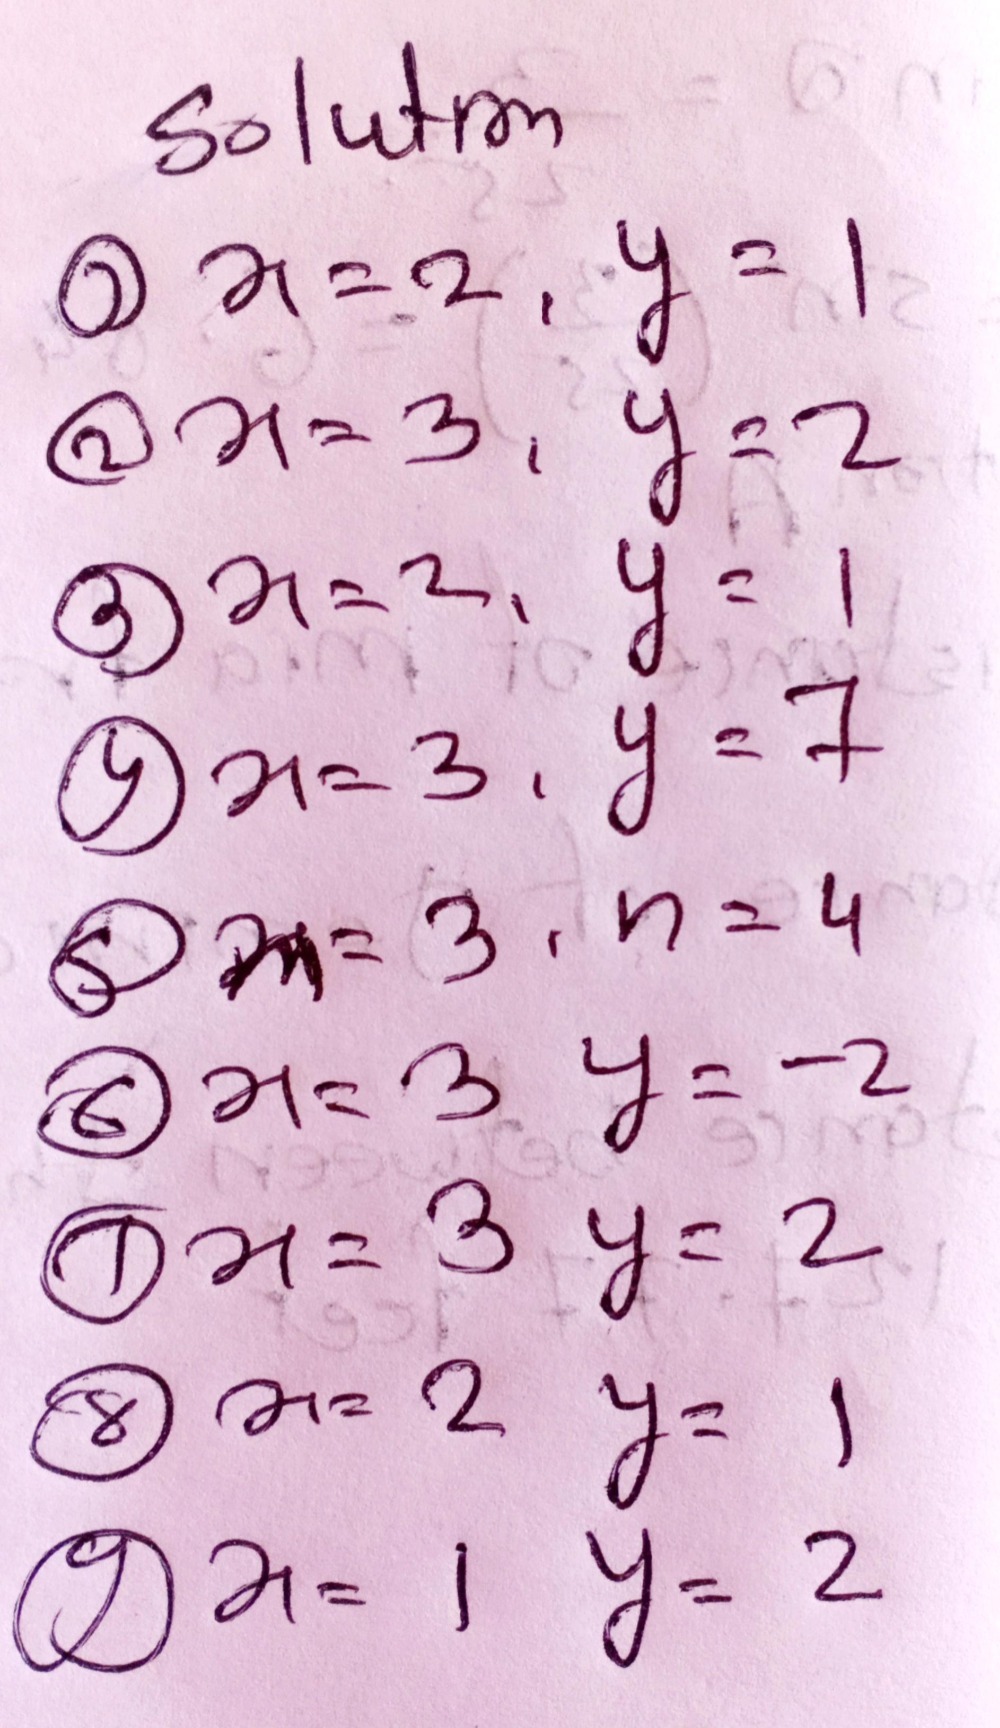 Solution
① x = 2, y = 1
② x = 3, y = 2
③ x = 2, y = 1
④ x = 3, y = 7
⑤ m = 3, n = 4
⑥ x = 3 y = -2
⑦ x = 3 y = 2
⑧ x = 2 y = 1
⑨ x = 1 y = 2